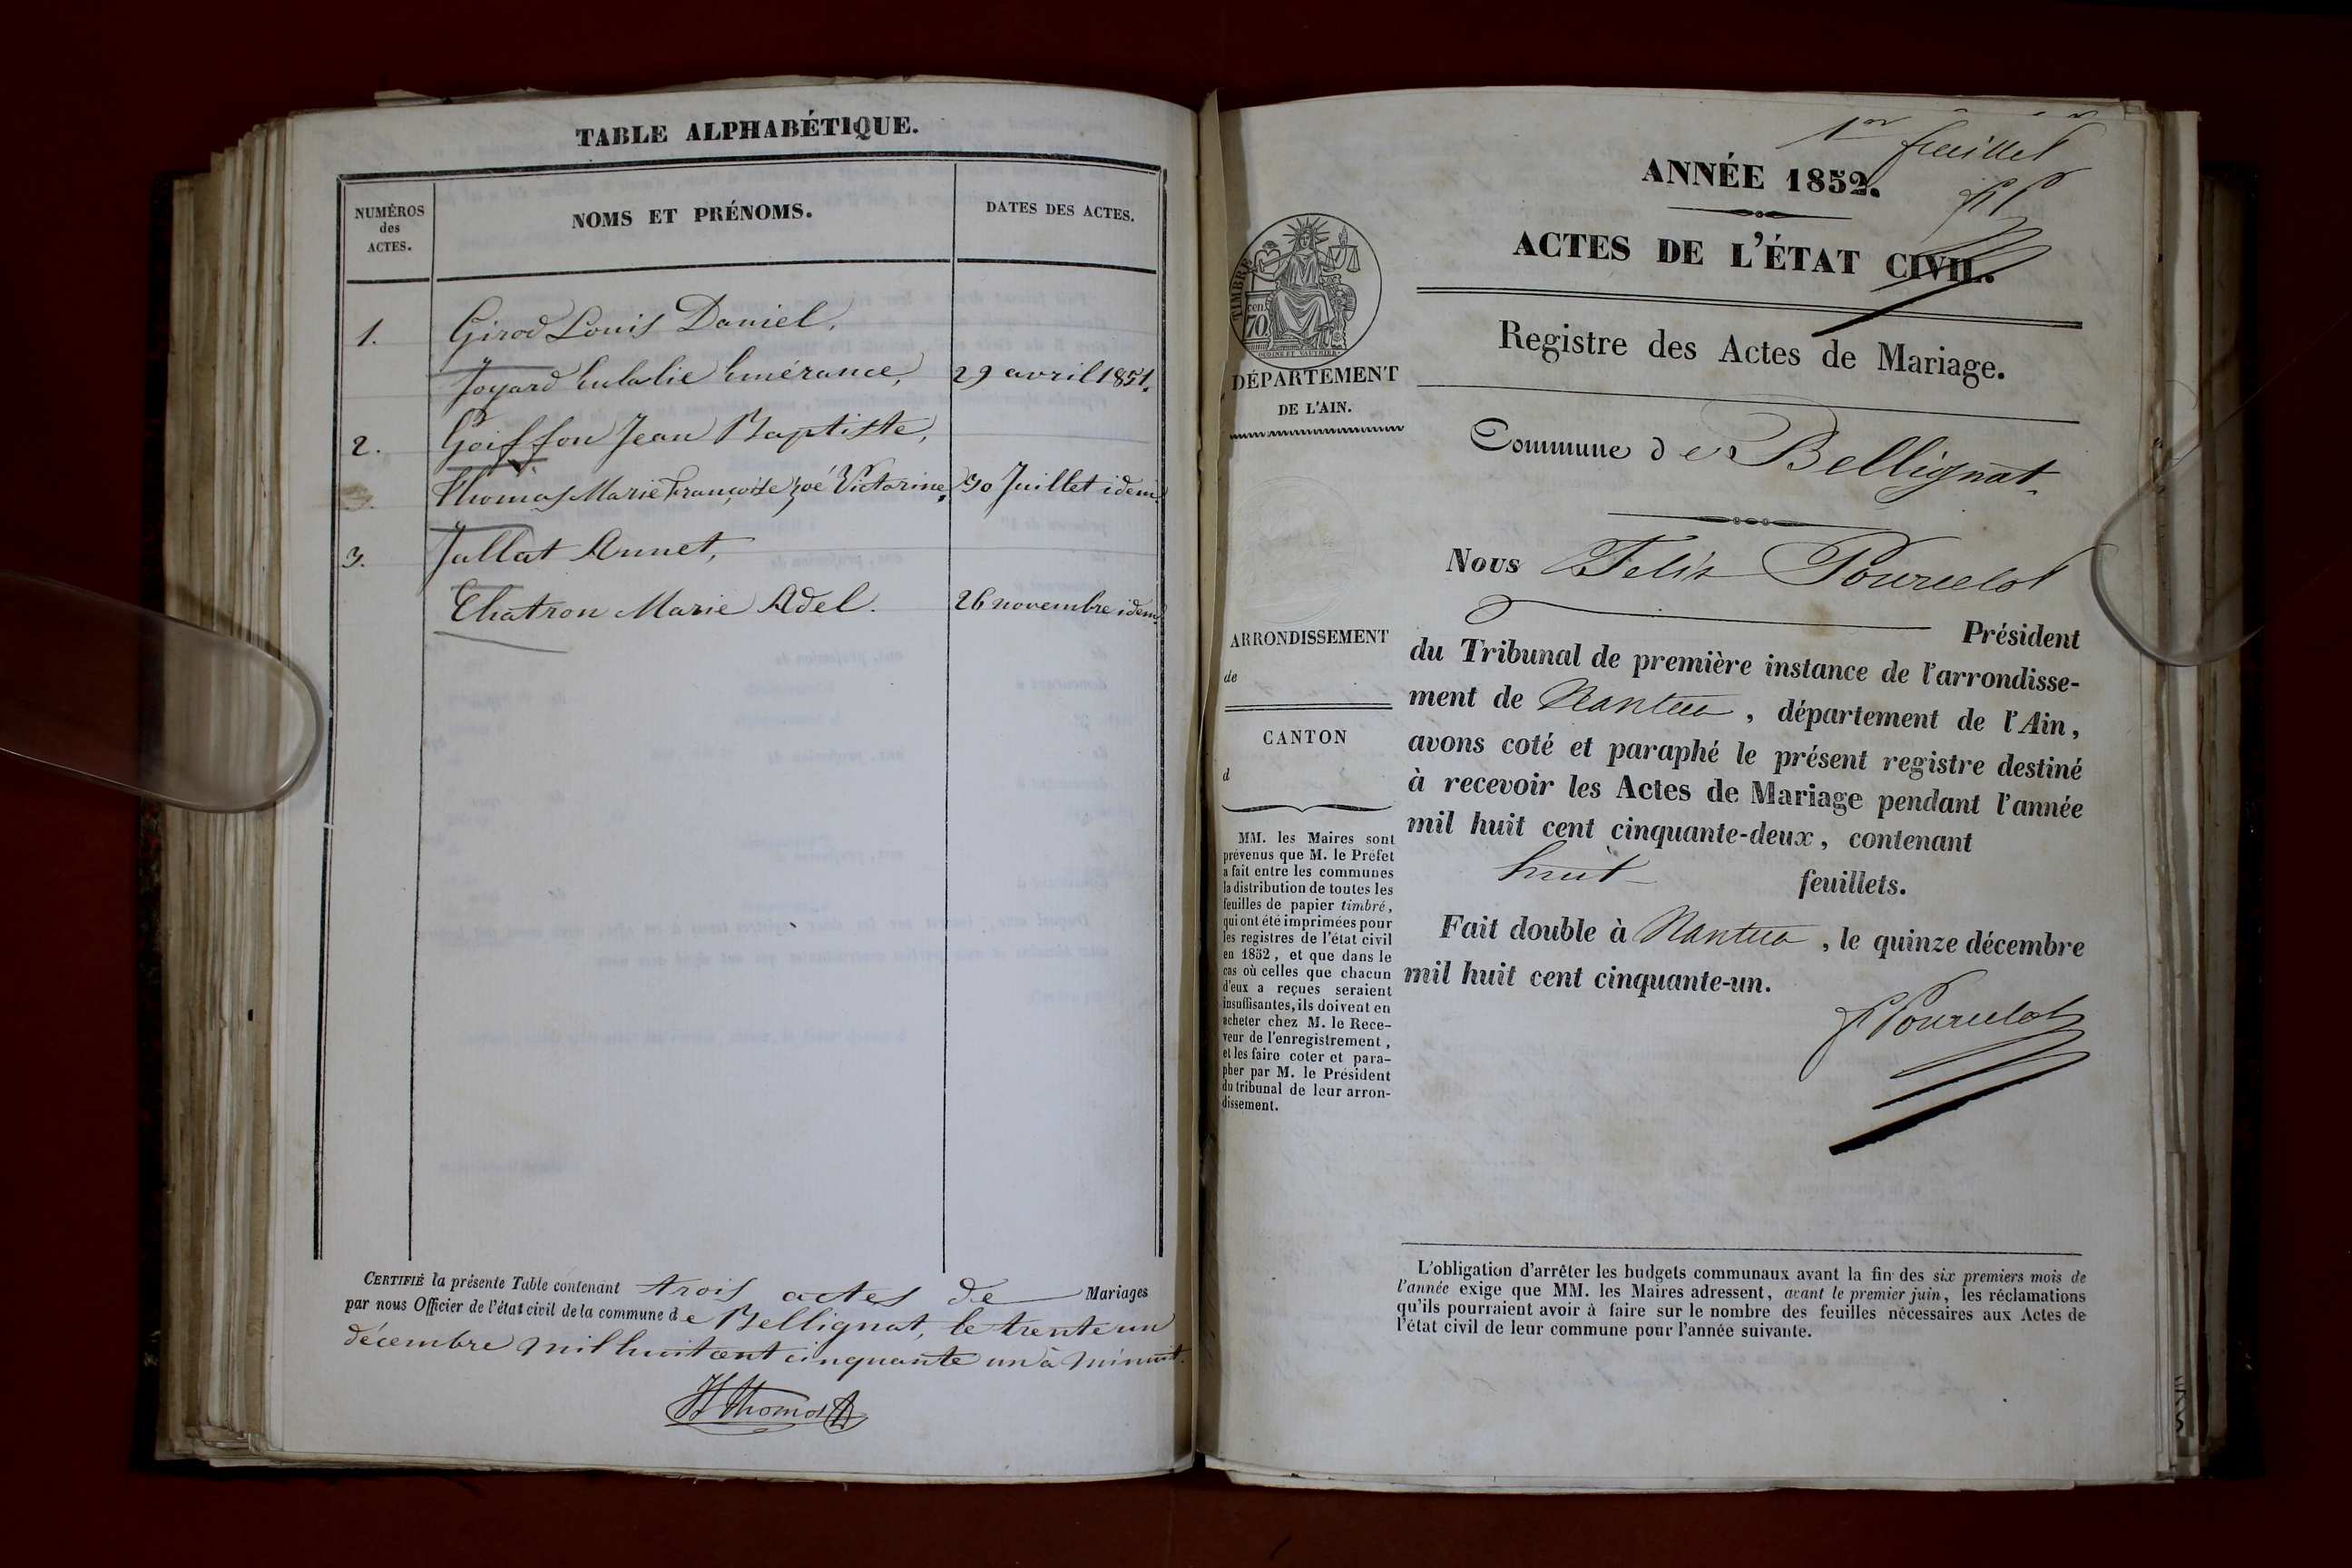 TABLE ALPHABÉTIQUE.
NUMÉROS
des
ACTES.
NOMS ET PRÉNOMS.
DATES DES ACTES.
1. Girod Louis Daniel,
Joyard Eulalie Emérance, 29 avril 1851.
2. Goiffon Jean Baptiste,
Thomas Marie Françoise Zoé Victorine, 30 Juillet idem.
3. Jullat Annet,
Chatron Marie Adel. 26 novembre idem.
CERTIFIÉ la présente Table contenant trois actes de Mariages
par nous Officier de l'état civil de la commune de Bellignat, le trente un
décembre mil huit cent cinquante un à minuit.
Thomas
1er feuillet
ANNÉE 1852.
ACTES DE L'ÉTAT CIVIL.
Registre des Actes de Mariage.
TIMBRE
cen.
70
DÉPARTEMENT
DE L'AIN.
Commune de Bellignat.
Nous Felix Pourcelot
Président
du Tribunal de première instance de l'arrondisse-
ment de Nantua, département de l'Ain,
avons coté et paraphé le présent registre destiné
à recevoir les Actes de Mariage pendant l'année
mil huit cent cinquante-deux, contenant
huit feuillets.
Fait double à Nantua, le quinze décembre
mil huit cent cinquante-un.
F Pourcelot
ARRONDISSEMENT
de
CANTON
d
MM. les Maires sont
prévenus que M. le Préfet
a fait entre les communes
la distribution de toutes les
feuilles de papier timbré,
qui ont été imprimées pour
les registres de l'état civil
en 1852, et que dans le
cas où celles que chacun
d'eux a reçues seraient
insuffisantes, ils doivent en
acheter chez M. le Rece-
veur de l'enregistrement,
et les faire coter et para-
pher par M. le Président
du tribunal de leur arron-
dissement.
L'obligation d'arrêter les budgets communaux avant la fin des six premiers mois de
l'année exige que MM. les Maires adressent, avant le premier juin, les réclamations
qu'ils pourraient avoir à faire sur le nombre des feuilles nécessaires aux Actes de
l'état civil de leur commune pour l'année suivante.